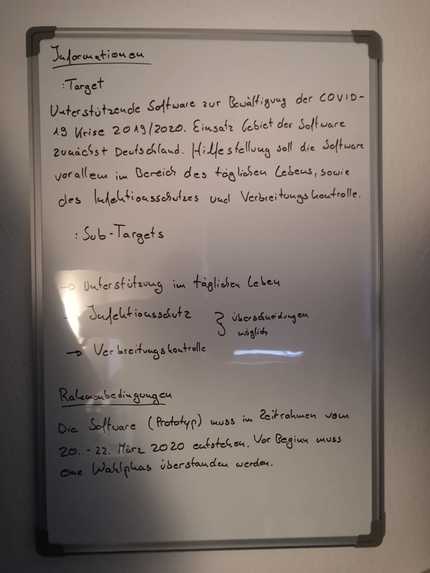 Informationen
:Target
Unterstützende Software zur Bewältigung der COVID-
19 Krise 2019/2020. Einsatz Gebiet der Software
zunächst Deutschland. Hilfestellung soll die Software
vorallem im Bereich des täglichen Lebens, sowie
des Infektionsschutzes und Verbreitungskontrolle.
:Sub-Targets
→ Unterstützung im täglichen Leben
→ Infektionsschutz } überschneidungen
möglich
→ Verbreitungskontrolle
Rahmenbedingungen
Die Software (Prototyp) muss im Zeitrahmen vom
20. - 22. März 2020 entstehen. Vor Beginn muss
eine Wahlphas überstanden werden.